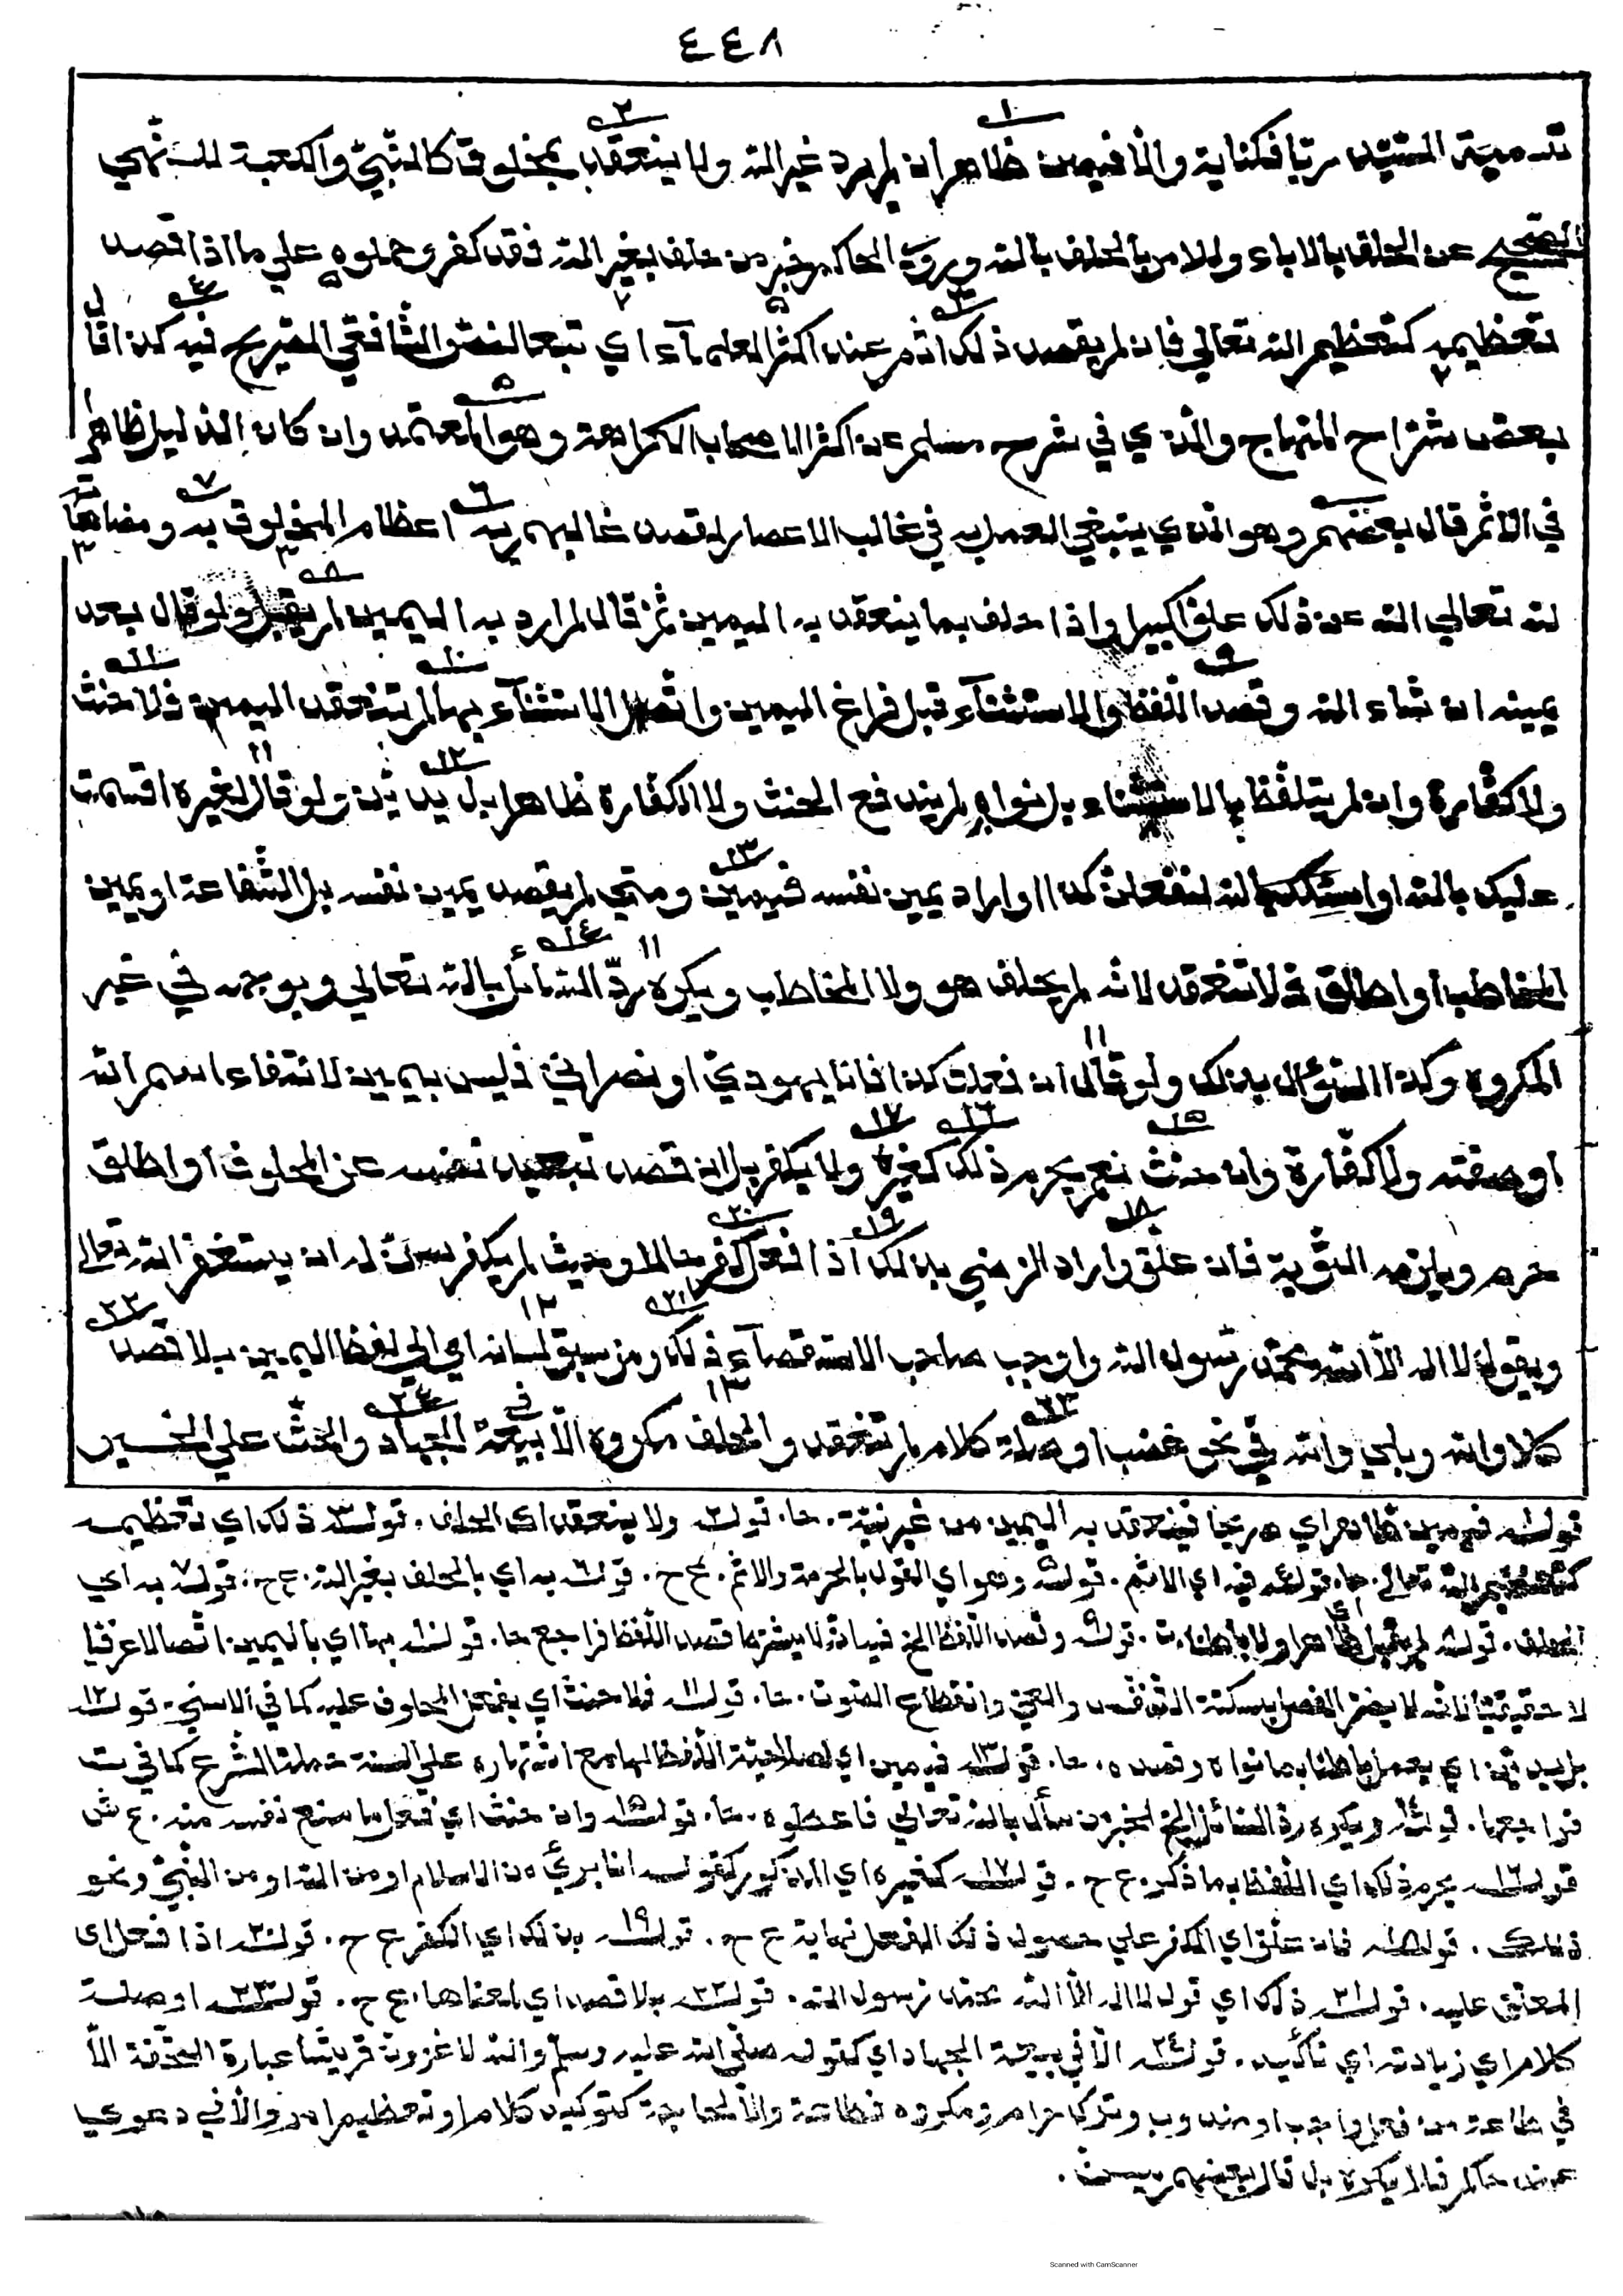 ٤٤٨
تسمية السيد ربا فكناية والا فيمين ظاهرا ان لم يرد غير الله ولا ينعقد بمخلوق كالنبي والكعبة للنهي
الصحيح عن الحلف بالاباء وللامر بالحلف بالله وروى الحاكم خبر من حلف بغير الله فقد كفر وحملوه علي ما اذا قصد
تعظيمه كتعظيم الله تعالي فان لم يقصد ذلك اثم عند اكثر العلماء اي تبعا لنص الشافعي الصريح فيه كذا قال
بعض شراح المنهاج والذي في شرح مسلم عن اكثر الاصحاب الكراهة وهو المعتمد وان كان الدليل ظاهرا
في الاثم قال بعضهم وهو الذي ينبغي العمل به في غالب الاعصار لقصد غالبهم به اعظام المخلوق به ومضاهاته
لله تعالي الله عن ذلك علوا كبيرا واذا حلف بما ينعقد به اليمين ثم قال لم ارد به اليمين لم يقبل ولو قال بعد
يمينه ان شاء الله وقصد اللفظ والاستثناء قبل فراغ اليمين واتصل الاستثناء بها لم تنعقد اليمين فلا حنث
ولا كفارة وان لم يتلفظ بالاستثناء بل نواه لم يندفع الحنث ولا الكفارة ظاهرا بل يدين ولو قال لغيره اقسمت
عليك بالله او اسئلك بالله لتفعلن كذا واراد يمين نفسه فيمين ومتي لم يقصد يمين نفسه بل الشفاعة او يمين
المخاطب او اطلق فلا تنعقد لانه لم يحلف هو ولا المخاطب ويكره رد السائل بالله تعالي وبوجهه في غير
المكروه وكذا السؤال بذلك ولو قال ان فعلت كذا فانا يهودي او نصراني فليس بيمين لانتفاء اسم الله
او صفته ولا كفارة وان حنث نعم يحرم ذلك كغيره ولا يكفر بل ان قصد تبعيد نفسه عن المحلوف او اطلق
حرم ويلزمه التوبة فان علق واراد الرضي بذلك اذا فعل كفر حالا وحيث لم يكفر سن له ان يستغفر الله تعالى
ويقول لا اله الا الله محمد رسول الله واوجب صاحب الاستقصاء ذلك ومن سبق لسانه اي الي لفظ اليمين بلا قصد
كلا والله وبلي والله في نحو غضب او صلة كلام لم تنعقد والحلف مكروه الا في بيعة الجهاد والحث علي الخير
قوله١ فيمين ظاهرا اي صريحا فينعقد به اليمين من غير نية. حا. قوله٢ ولا ينعقد اى الحلف. قوله٣ ذلك اي تعظيمه
كتعظيم الله تعالى. حا. قوله٤ فيه اي الاثم. قوله٥ وهو اي القول بالحرمة والاثم. ع ح. قوله٦ به اي بالحلف بغير الله. ع ح. قوله٧ به اي
الحلف. قوله٨ لم يقبل اي ظاهرا ولا باطنا. ت. قوله٩ وقصد اللفظ الخ فيه انه لا يشترط قصد اللفظ فراجع حا. قوله١٠ بها اي باليمين اتصالا عرفيا
لا حقيقيا لانه لا يضر الفصل بسكتة التنفس والعي وانقطاع الصوت. حا. قوله١١ فلا حنث اي بفعل المحلوف عليه كما في الاسني. قوله١٢
بل يدين اي يعمل باطنا بما نواه وقصده. حا. قوله١٣ فيمين اي لصلاحية اللفظ لها مع اشتهاره علي السنة حملة الشرع كما في ت
فراجعها. قوله١٤ ويكره رد السائل الخ لخبر من سأل بالله تعالي فاعطوه. حا. قوله١٥ وان حنث اي فعل ما منع نفسه منه. ع ش
قوله١٦ يحرم ذلك اي اللفظ بما ذكر. ع ح. قوله١٧ كغيره اي المذكور كقوله انا بريء من الاسلام او من الله او من النبي ونحو
ذلك. قوله١٨ فان علق اي الكفر علي حصول ذلك الفعل نهاية ع ح. قوله١٩ بذلك اي الكفر ع ح. قوله٢٠ اذا فعل اى
المعلق عليه. قوله٢١ ذلك اي قول لا اله الا الله محمد رسول الله. قوله٢٢ بلا قصد اي لمعناها. ع ح. قوله٢٣ او صلة
كلام اي زيادته اي تأكيد. قوله٢٤ الا في بيعة الجهاد اي كقوله صلي الله عليه وسلم والله لاغزون قريشا عبارة التحفة الا
في طاعة من فعل واجب او مندوب وترك حرام ومكروه فطاعة والا لحاجة كتوكيد كلام او تعظيم امر والا في دعوي
عند حاكم فلا يكره بل قال بعضهم يسن.
Scanned with CamScanner